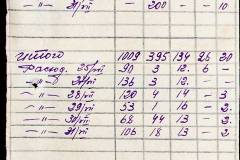 — 31/VII — 200 — — 10
Итого 1009 395 134 26 20
Расход. 25/VII 90 3 12. 6 —
— " — 136 3 12.
— " — 28/VII 120 4 14 — 3
— " — 29/VII 53 1 16 — 2.
— " — 30/VII 68 44 13 — 3.
— " — 31/VII 106 18 13 — 2